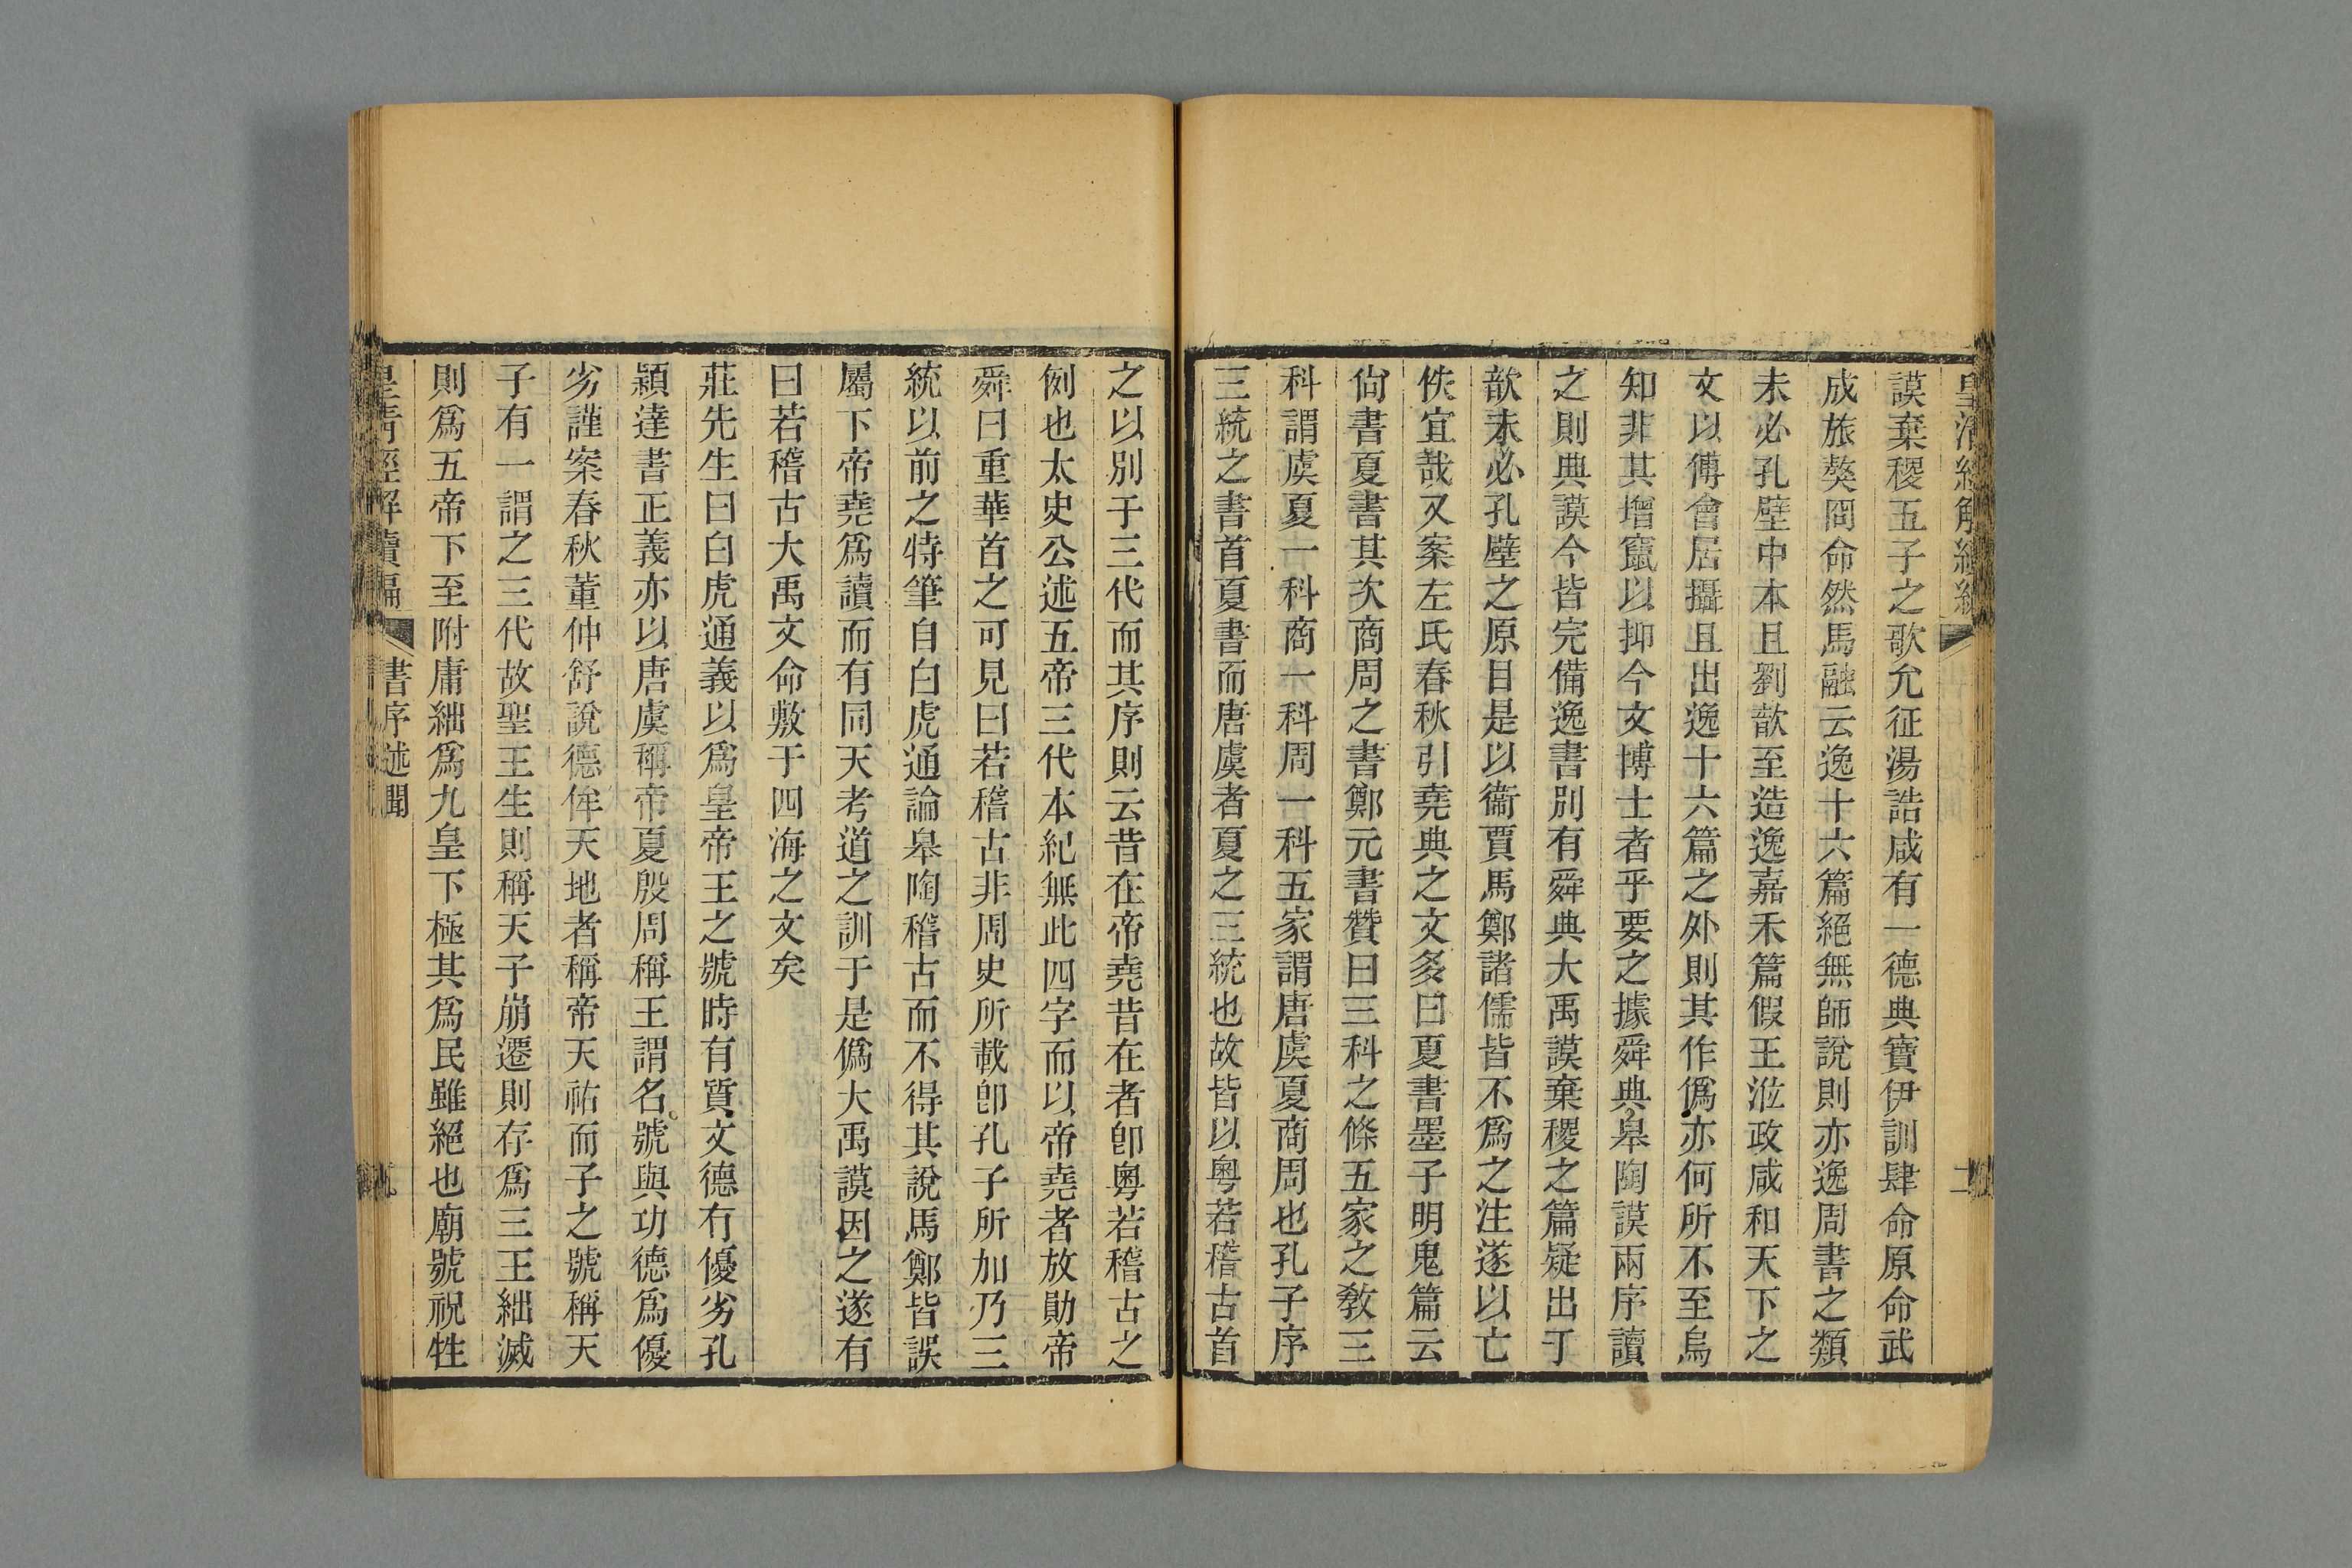 謨棄稷五子之歌允征湯誥咸有一德典寶伊訓肆命原命武
成旅獒冏命然馬融云逸十六篇絕無師說則亦逸周書之類
未必孔壁中本且劉歆至造逸嘉禾篇假王涖政咸和天下之
文以傅會居攝且出逸十六篇之外則其作僞亦何所不至烏
知非其增竄以抑今文博士者乎要之據舜典皋陶謨兩序讀
之則典謨今皆完備逸書別有舜典大禹謨棄稷之篇疑出于
歆未必孔壁之原目是以衞賈馬鄭諸儒皆不爲之注遂以亡
佚宜哉又案左氏春秋引堯典之文多曰夏書墨子明鬼篇云
尙書夏書其次商周之書鄭元書贊曰三科之條五家之敎三
科謂虞夏一科商一科周一科五家謂唐虞夏商周也孔子序
三統之書首夏書而唐虞者夏之三統也故皆以粵若稽古首
之以別于三代而其序則云昔在帝堯昔在者卽粵若稽古之
例也太史公述五帝三代本紀無此四字而以帝堯者放勛帝
舜曰重華首之可見曰若稽古非周史所載卽孔子所加乃三
統以前之特筆自白虎通論皋陶稽古而不得其說馬鄭皆誤
屬下帝堯爲讀而有同天考道之訓于是僞大禹謨因之遂有
曰若稽古大禹文命敷于四海之文矣
莊先生曰白虎通義以爲皇帝王之號時有質文德冇優劣孔
穎達書正義亦以唐虞稱帝夏殷周稱王謂名號與功德爲優
劣謹案春秋董仲舒說德侔天地者稱帝天祐而子之號稱天
子有一謂之三代故聖王生則稱天子崩遷則存爲三王絀滅
則爲五帝下至附庸絀爲九皇下極其爲民雖絕也廟號祝牲
皇淸經解續編 書序述聞